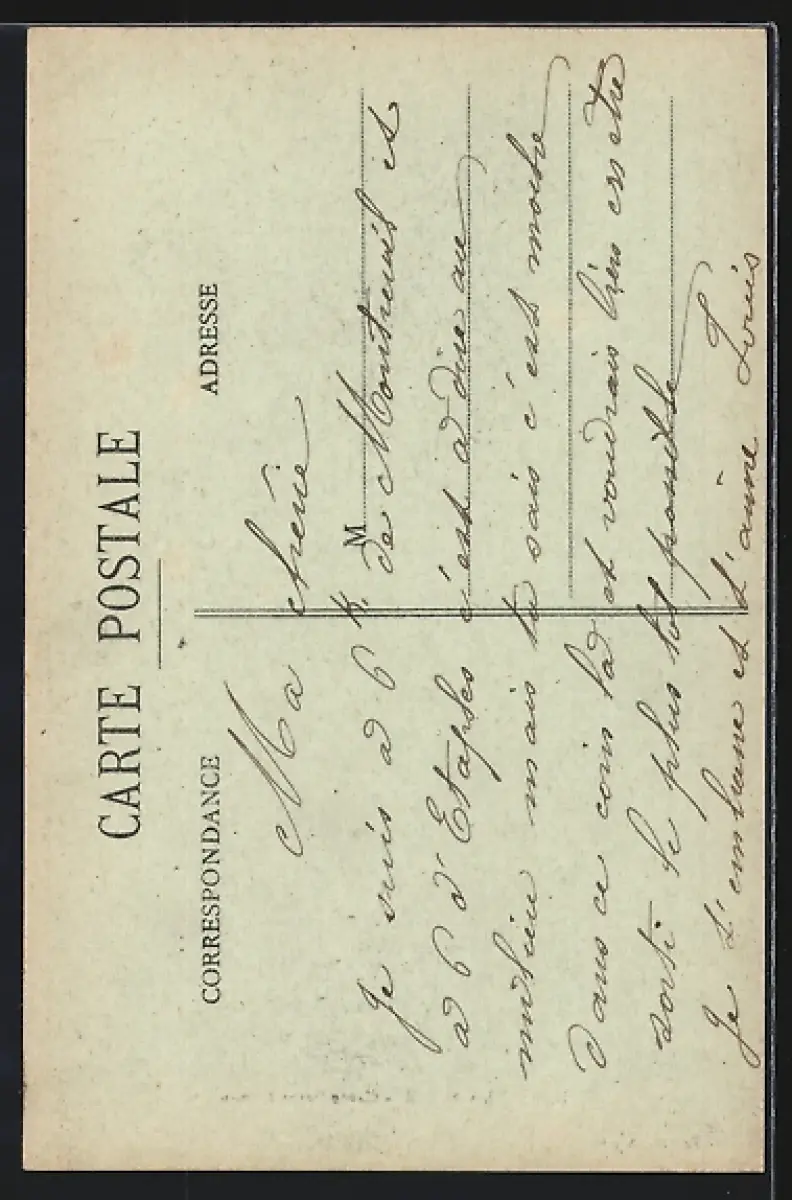 CARTE POSTALE
CORRESPONDANCE
ADRESSE
M
Ma Irénie
Je suis à 6 K. de Montreuil et
à 6 d'Etaples c'est à dire au
milieu mais tu sais c'est mortre
dans ce coin là et voudrais bien en être
sorti le plus tôt possible
Je t'embrasse et t'aime Louis